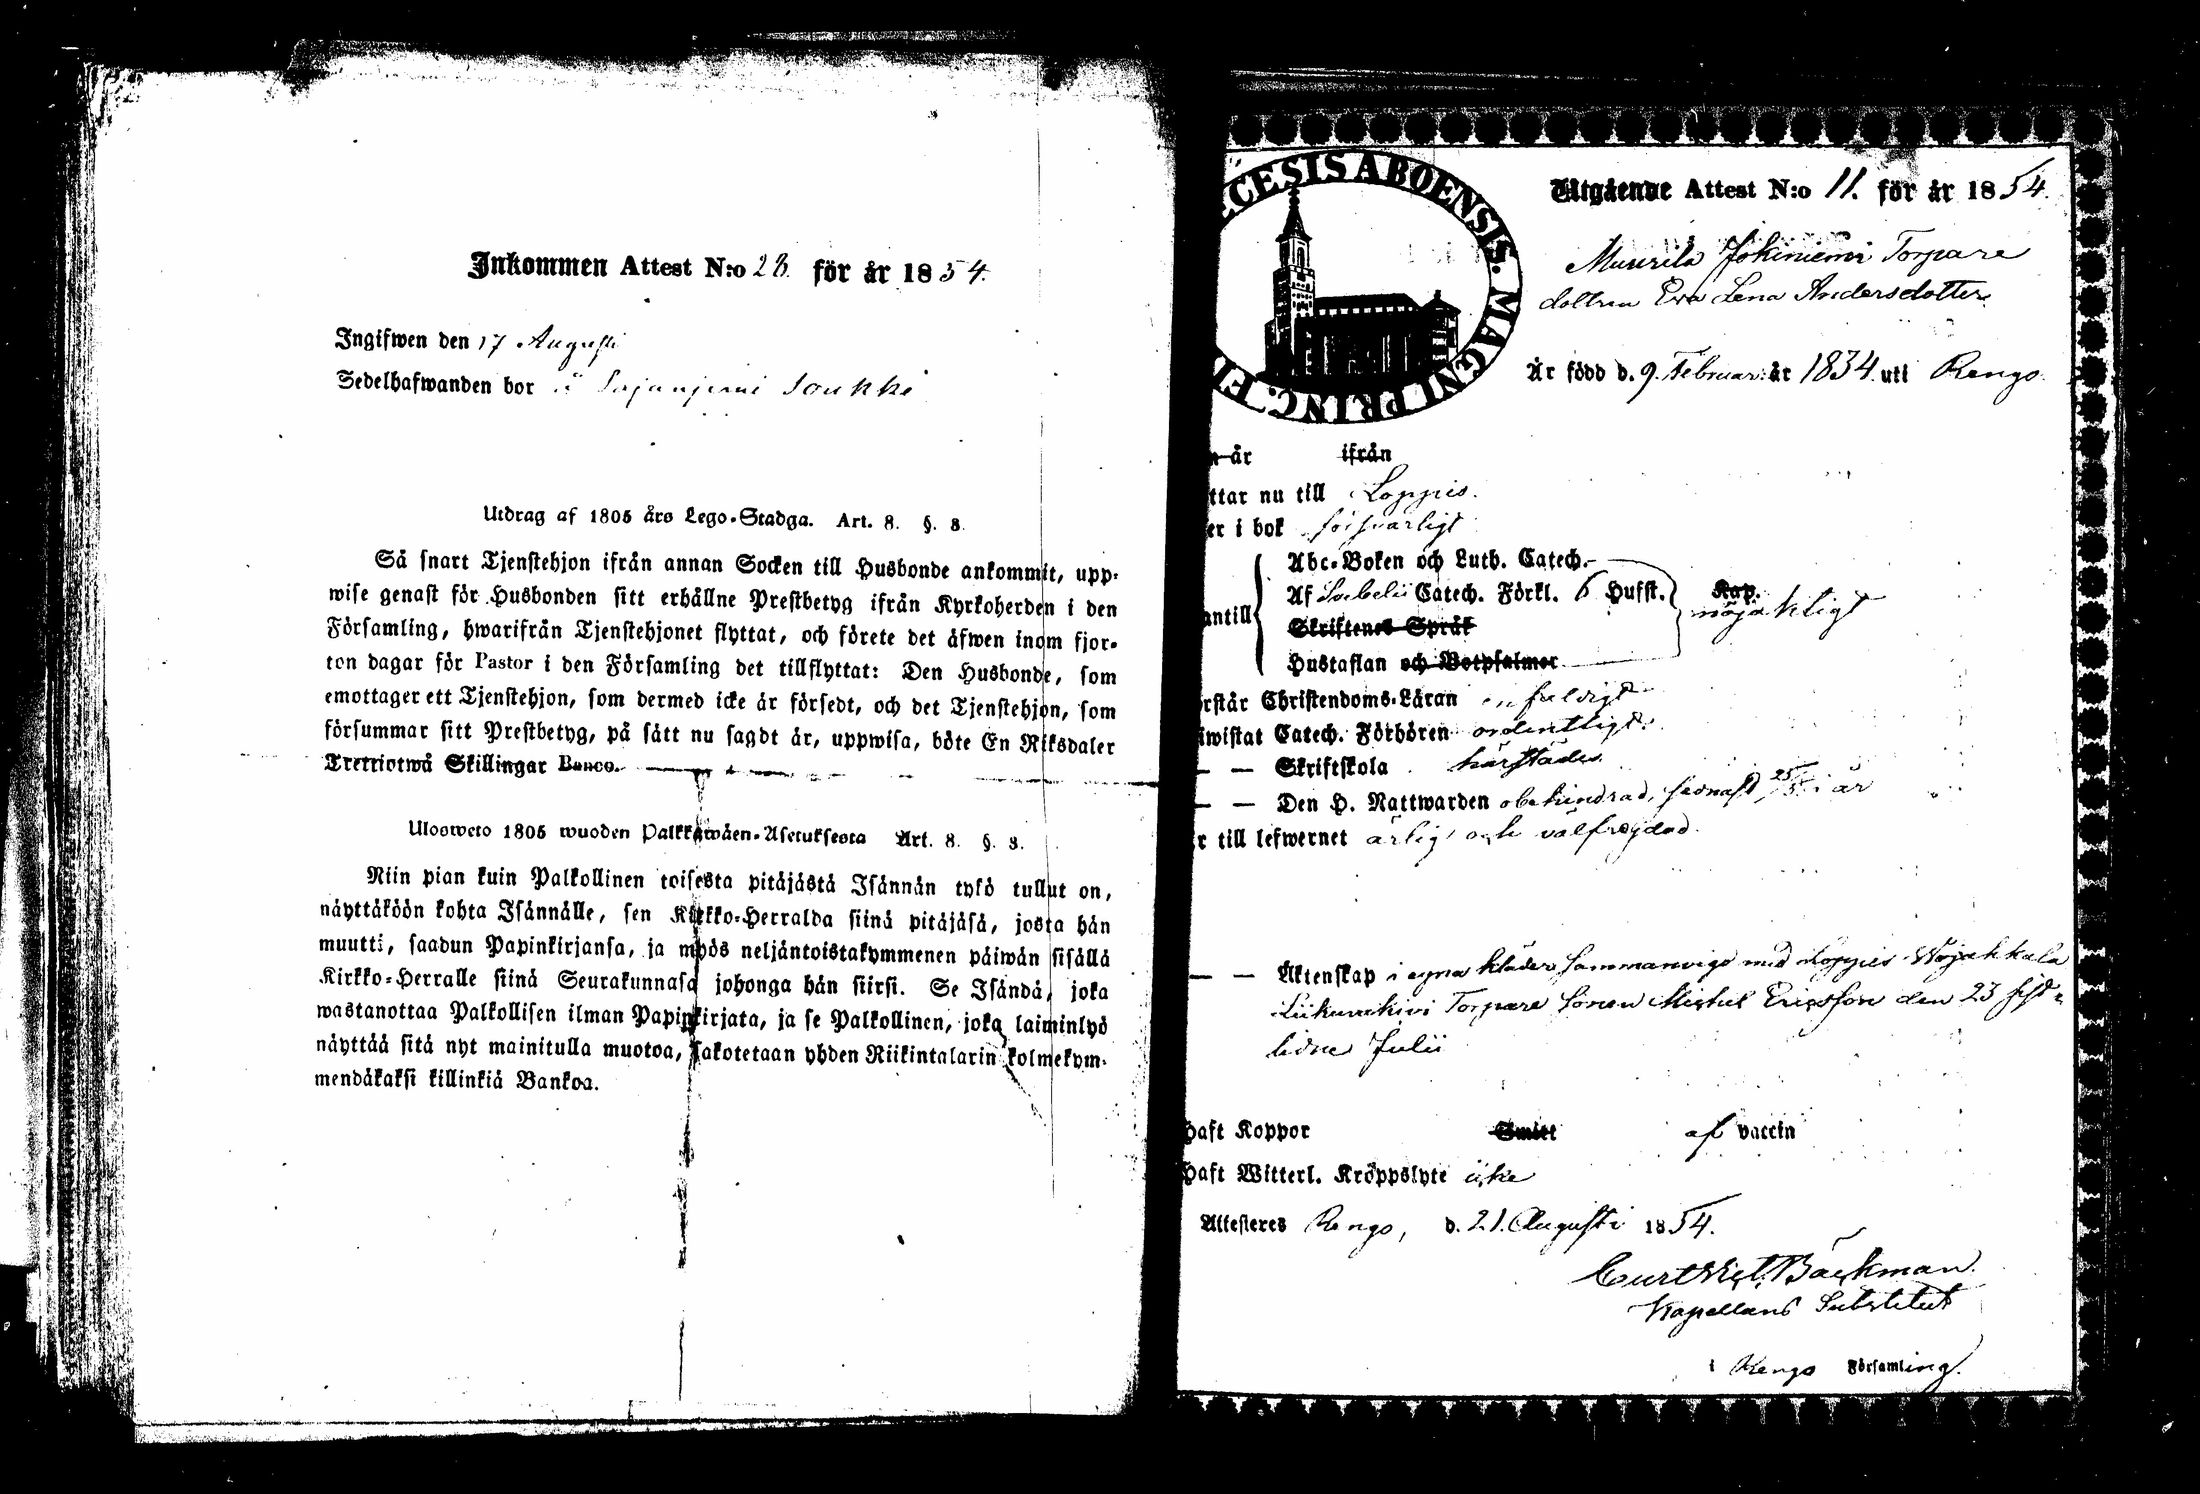 Inkommen Attest N:o 28. för år 1854.
Ingifwen den 17 Augusti
Sedelhafwanden bor i Sajaniemi Soukki
Utdrag af 1805 års Lego-Stadga. Art. 8. §. 8.
Så snart Tjenstehjon ifrån annan Socken till Husbonde ankommit, upp-
wise genast för Husbonden sitt erhållne Prestbetyg ifrån Kyrkoherden i den
Församling, hwarifrån Tjenstehjonet flyttat, och förete det äfwen inom fjor-
ton dagar för Pastor i den Församling det tillflyttat: Den Husbonde, som
emottager ett Tjenstehjon, som dermed icke är försedt, och det Tjenstehjon, som
försummar sitt Prestbetyg, på sätt nu sagdt är, uppwisa, böte En Riksdaler
Trettiotwå Skillingar Banco.
Ulosweto 1805 wuoden Palkkawäen-Asetuksesta Art. 8. §. 8.
Niin pian kuin Palkollinen toisesta pitäjästä Isännän tykö tullut on,
näyttäköön kohta Isännälle, sen Kirkko-Herralda siinä pitäjäsä, josta hän
muutti, saadun Papinkirjansa, ja myös neljäntoistakymmenen päiwän sisällä
Kirkko-Herralle siinä Seurakunnasa johonga hän siirsi. Se Isändä, joka
wastanottaa Palkollisen ilman Papinkirjata, ja se Palkollinen, joka laiminlyö
näyttää sitä nyt mainitulla muotoa, sakotetaan yhden Riikintalarin kolmekym-
mendäkaksi killinkiä Bankoa.
CESIS ABOENSIS. MAGNI PRINC. FI
Utgående Attest N:o 11. för år 1854.
Muurila Jokiniemi Torpare
dottren Eva Lena Andersdotter
Är född d. 9. Februar. år 1834. uti Rengo.
n år ifrån
ttar nu till Loppis.
er i bok försvarligt
Abc-Boken och Luth. Catech.
antill Af Catech. Förkl. 6 Hufst. Kap. nöjaktligt
Skriftenes Språk
Hustaflan och Botpsalmer
rstår Christendoms-Läran enfaldigt
iwistat Catech. Förhören ordentligt.
— — Skriftskola härstädes
— — Den H. Nattwarden obehindrad, sednast 25/5 i år
r till lefwernet ärlig och välfrejdad.
— — Äktenskap i egna kläder sammanvigd med Loppis Wojakkala
Torpare Sonen Michel Ericsson den 23 sist-
lidne Julii
haft Koppor Smitt af vaccin
haft Witterl. Kroppslyte icke
Attesteres Rengo, d. 21. Augusti 1854.
Curt Vict. Bäckman.
Kapellans Substitut
i Rengo Församling.